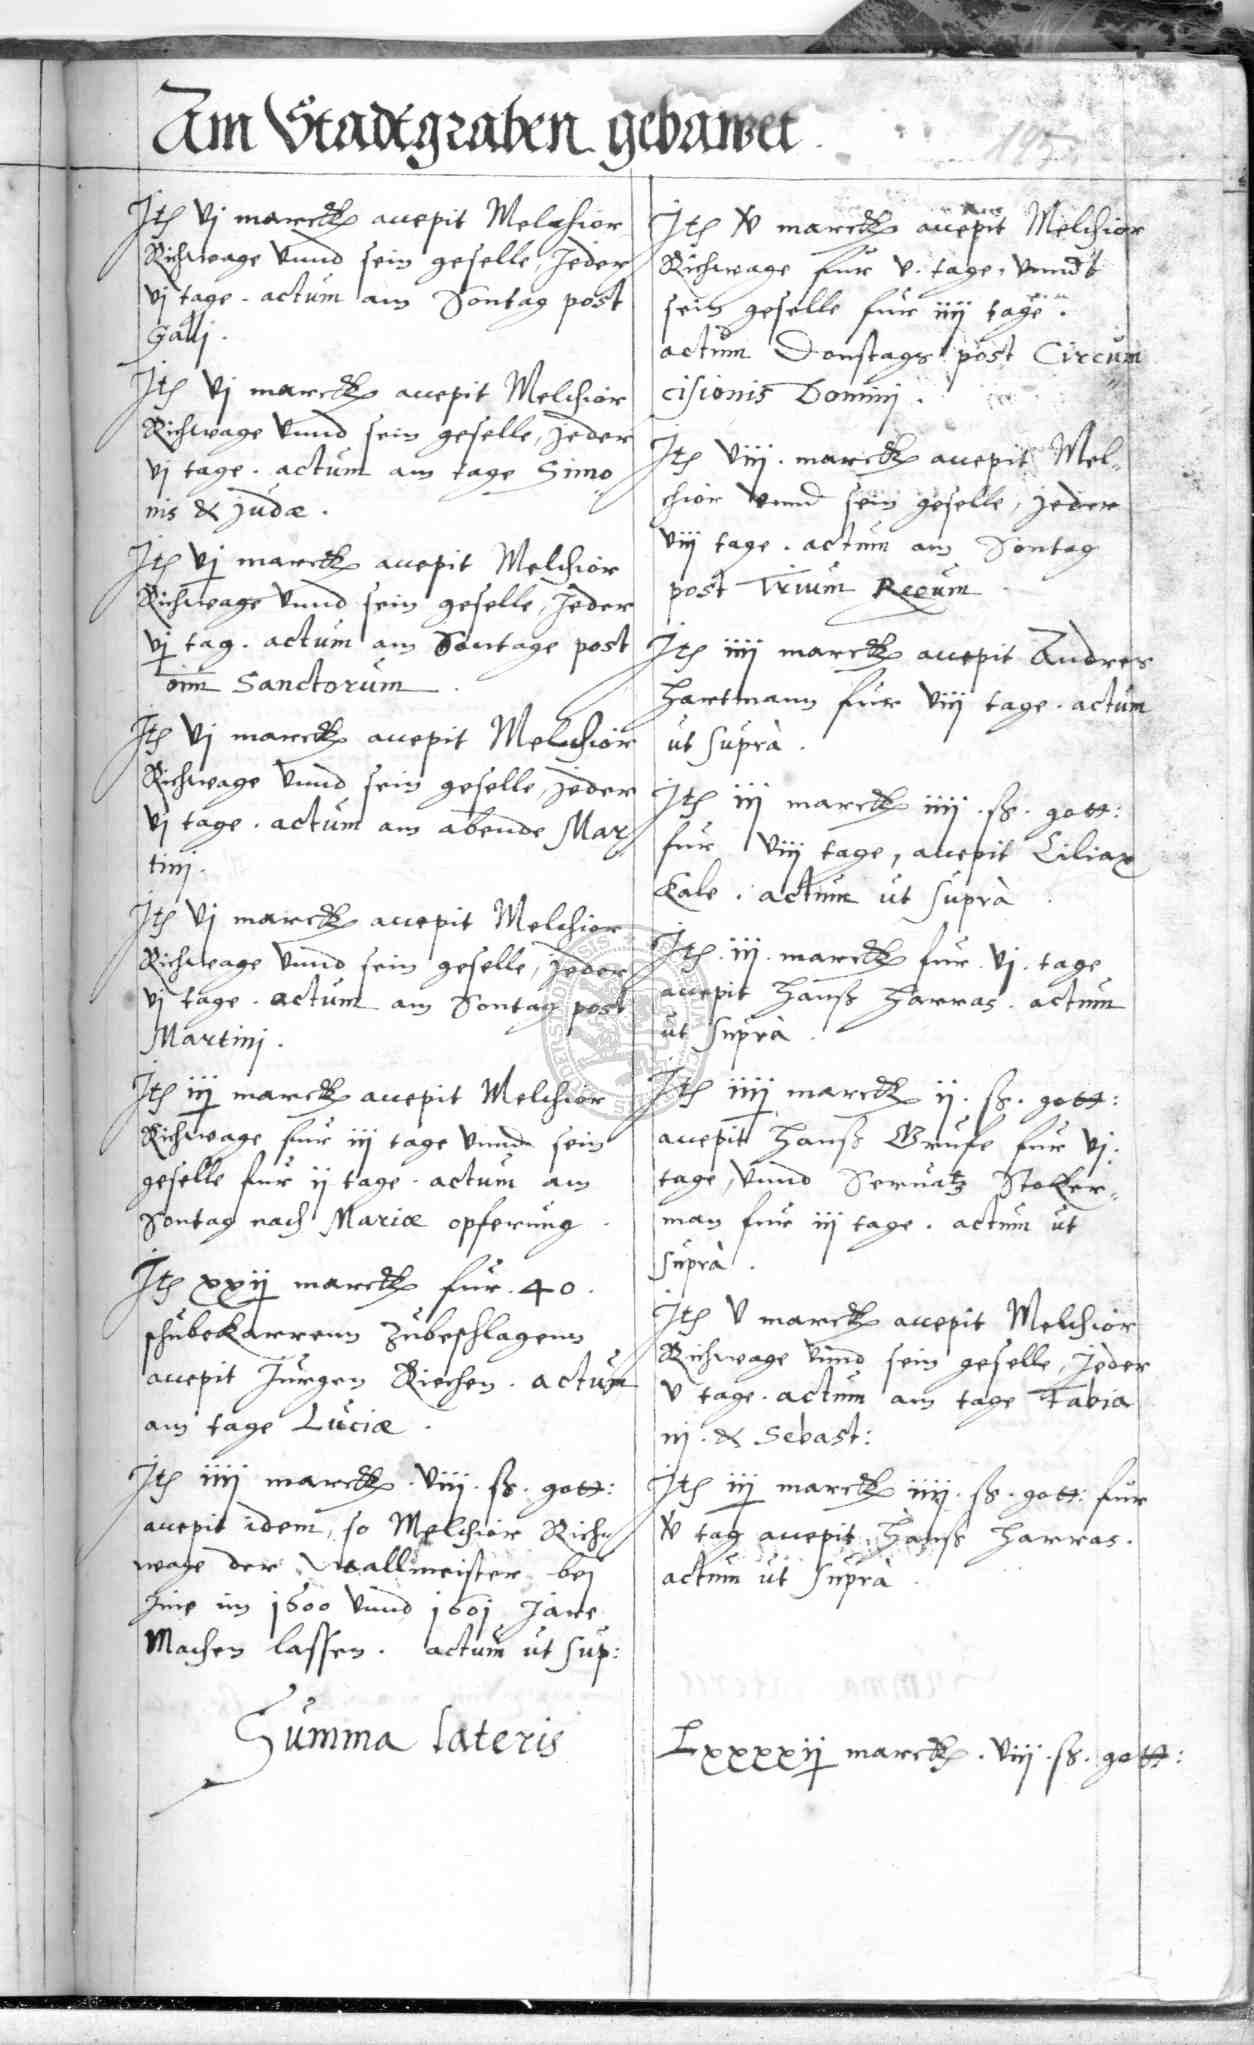 Am Stadtgraben gebawet.
195
Jtē vj marck accepit Melchior
Richwage vnnd sein geselle, Jeder
vj tage. actum am Sontag post
Galli.
Jtē vj marck accepit Melchior
Richwage vnnd sein geselle, jeder
vj tage. actum am tage Simo
nis & judæ.
Jtē vj marck accepit Melchior
Richwage vnnd sein geselle, Jeder
vj tag. actum am Sontage post
oīm Sanctorum.
Jtē vj marck accepit Melchior
Richwage vnnd sein geselle, jeder
vj tage. actum am abende Mar
tinj.
Jtē vj marck accepit Melchior
Richwage vnnd sein geselle, jeder
vj tage. actum am Sontag post
Martinj.
Jtē iij marck accepit Melchior
Richwage fur iij tage vnnd sein
geselle fur ij tage. actum am
Sontag nach Mariæ opferung.
Jtē xxij marck fur. 40.
schubekarrenn zubeschlagenn
accepit Jurgen Riechen. actum
am tage Luciæ.
Jtē iiij marck. viij. ß. gott:
accepit idem, so Melchior Rich-
wage der Wallmeister bej
Jme im 1600 vnnd 1601 Jare
Machen lassen. actum ut sup:
Summa lateris
Jtē v marck accepit Melchior
Richwage fur v. tage, vnndt
sein geselle fur iiij tage.
actum Donstags post Circum
cisionis Dominj.
Jtē viij. marck accepit Mel-
chior vnnd sein geselle, jeder
viij tage. actum am Sontag
post Trium Regum
Jtē iiij marck accepit Andres
Hartmann fur viij tage. actum
ut suprà.
Jtē iij marck iiij. ß. gott:
fur viij tage, accepit Ciliax
Kale. actum ut suprà.
Jtē. iij. marck fur. vj. tage
accepit Hanß Harras. actum
ut suprà.
Jtē iiij marck ij. ß. gott:
accepit Hanß Grufe fur vj.
tage, vnnd Seruatz Stoker-
man fur iij tage. actum ut
suprà.
Jtē v marck accepit Melchior
Richwage vnnd sein geselle, Jeder
v tage. actum am tage Fabia
nj. & Sebast:
Jtē iij marck iiij. ß. gott: fur
v tag accepit Hanß Harras.
actum ut suprà.
Lxxxxij marck. viij. ß. gott: